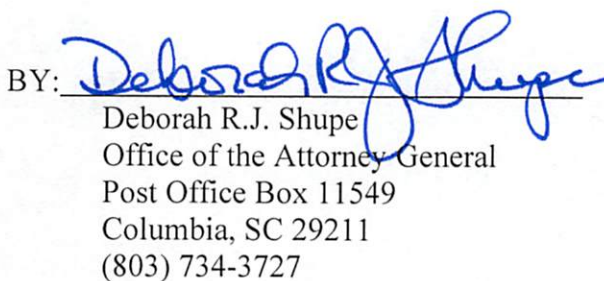 BY: Deborah R.J. Shupe
Deborah R.J. Shupe
Office of the Attorney General
Post Office Box 11549
Columbia, SC 29211
(803) 734-3727